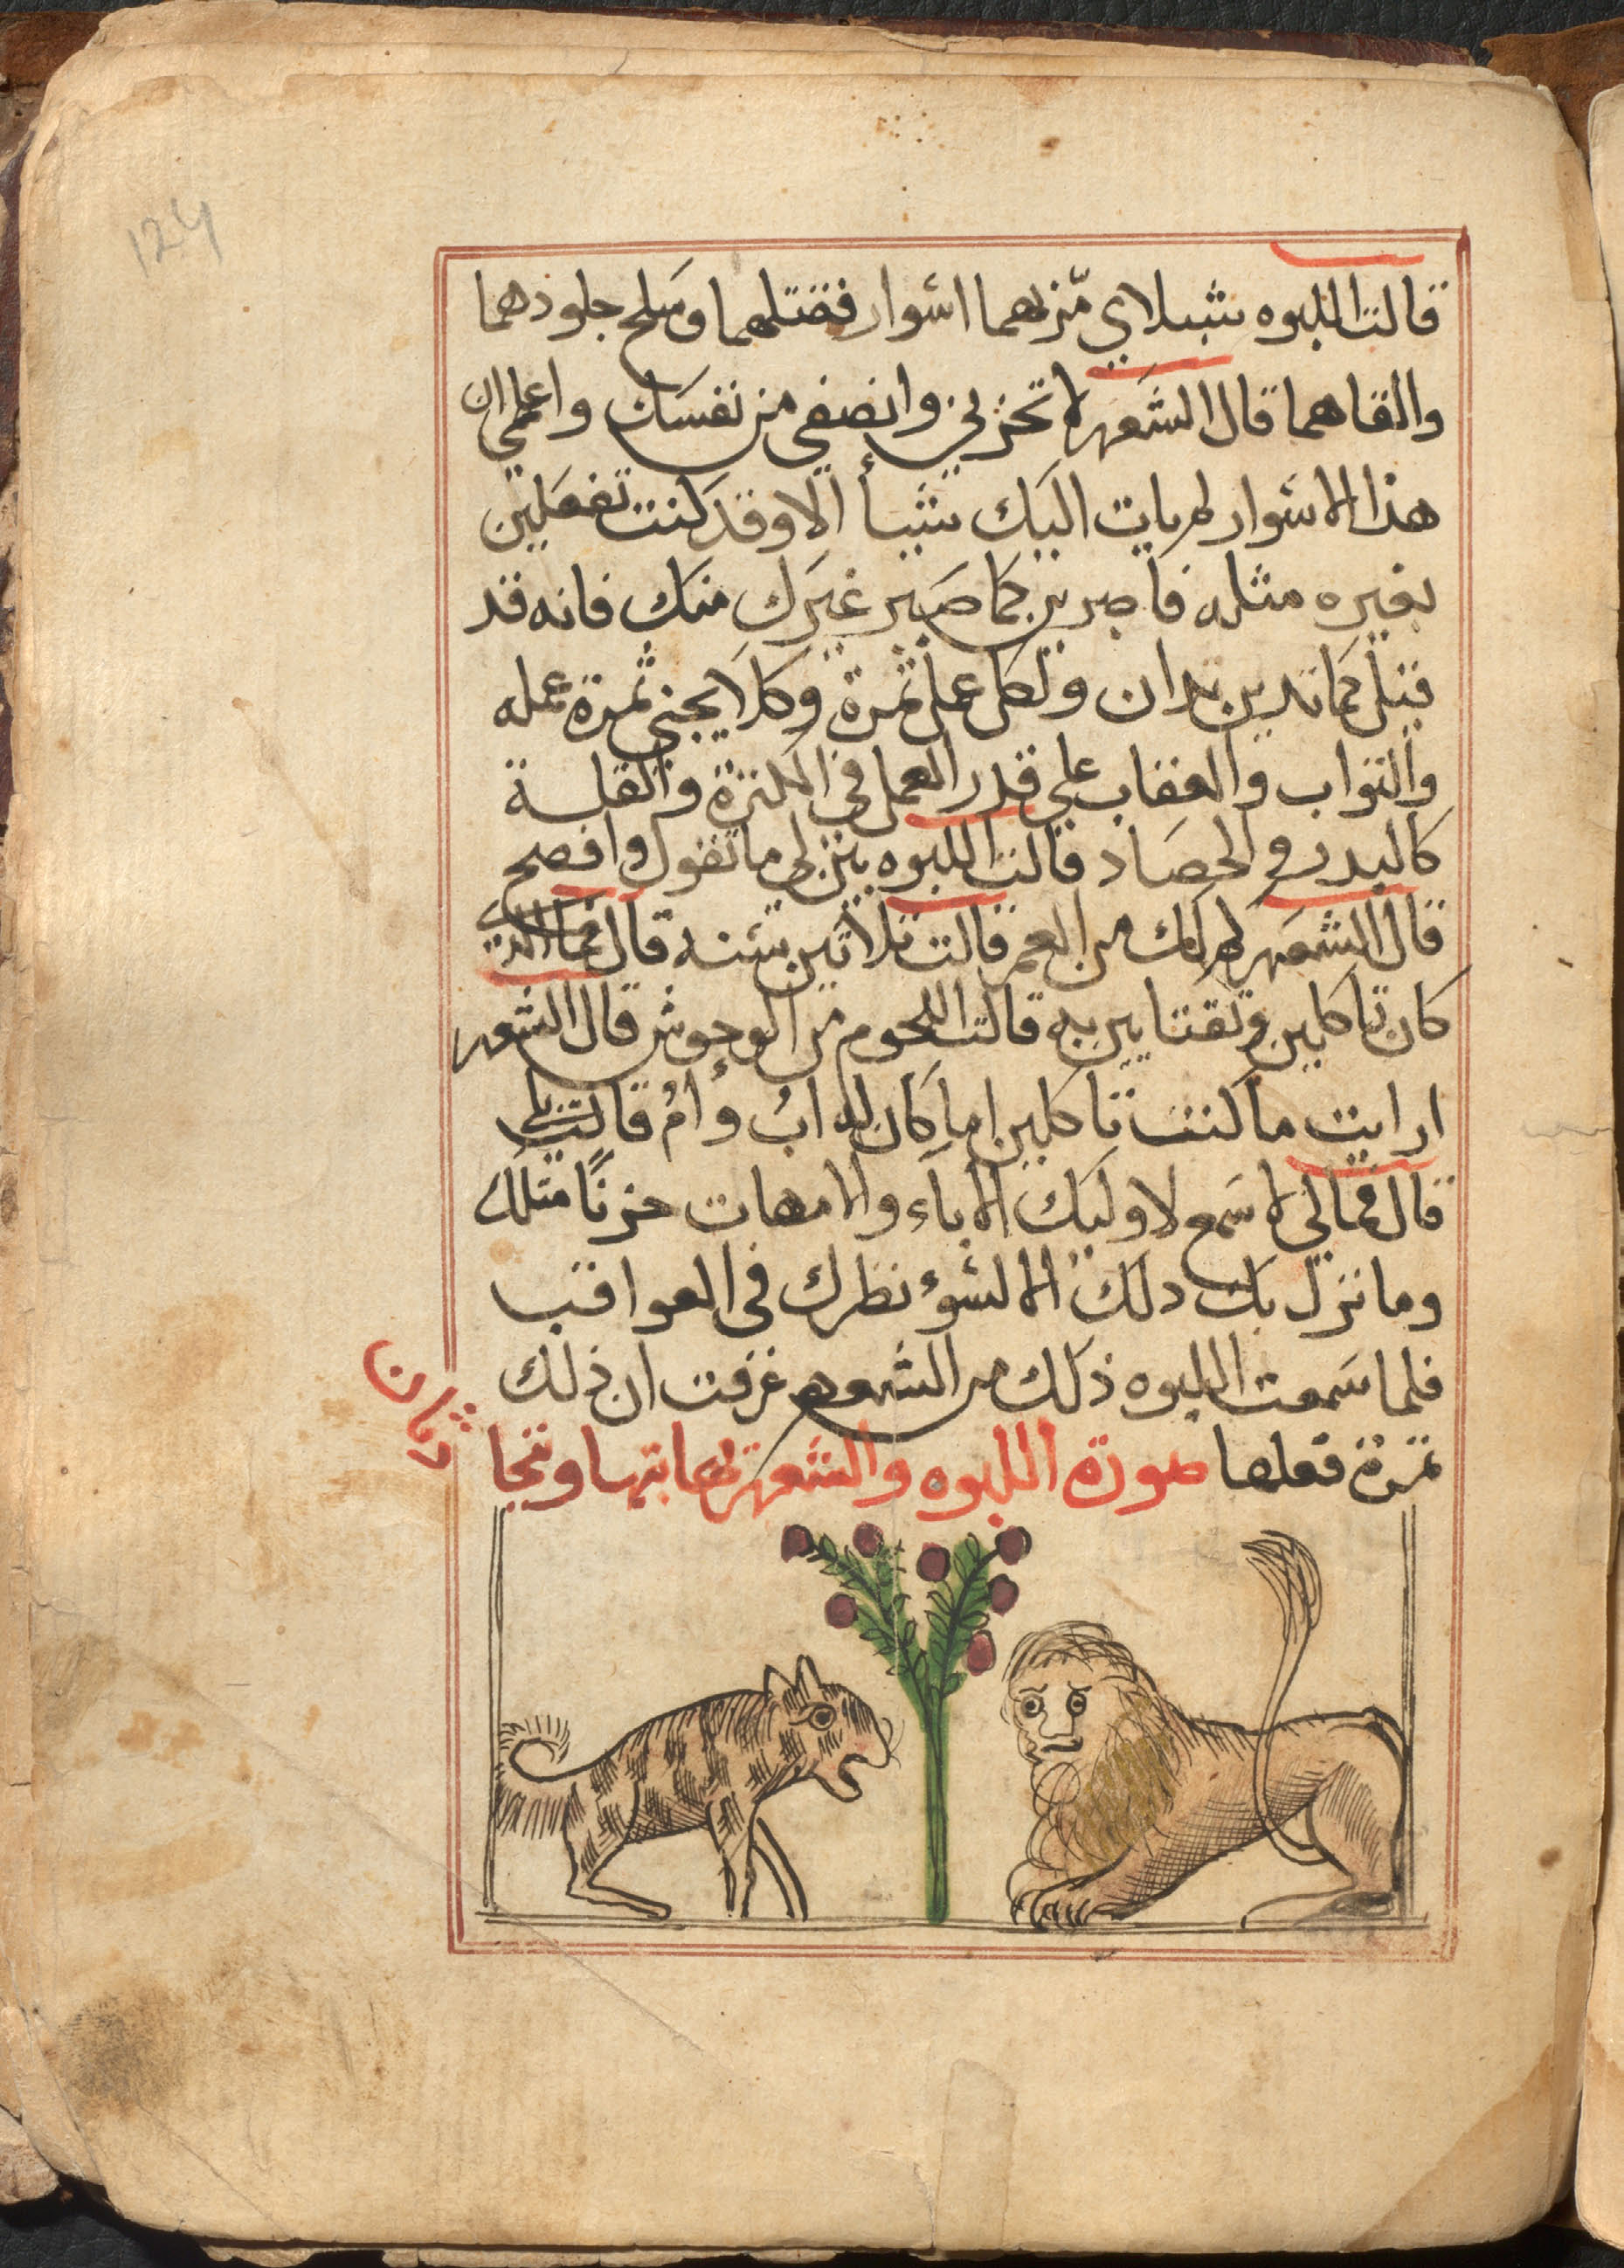 124
قالت اللبوه شبلاي مّر بهما اسوار فقتلهما وسلح جلودهما
والقاهما قال الشعهر لا تحزني وانصفي من نفسك واعلمي ان
هذا الاسوار لم يات اليك شيأ الا وقد كنت تفعلين
بغيره مثله فاصبري كما صبر غيرك منك فانه قد
قيل كما تدين تدان ولكل عمل ثمرة وكلا يجني ثمرة عمله
والثواب والعقاب علي قدر العمل في الكثرة والقلة
كالبدر في الحصاد قالت اللبوه بين لي ما تقول وافصح
قال الشعهر كم لك من العمر قالت ثلاثين سنه قال فما الذي
كان تاكلين وتقتاتين به قالت اللحوم من الوحوش قال الشعهر
ارايت ما كنت تاكلين اما كان له ابُ وامُ قالت بلي
قال فمالي لا اسمع لاوليك الاباء والامهات حزنًا مثلك
وما نزل بك دلك الا لسوء نظرك في العواقب
فلما سمعت اللبوه ذلك من الشعهر عرفت ان ذلك
ثمرة فعلها صورة اللبوه والشعهر يعاتبها ويتحا
دثان